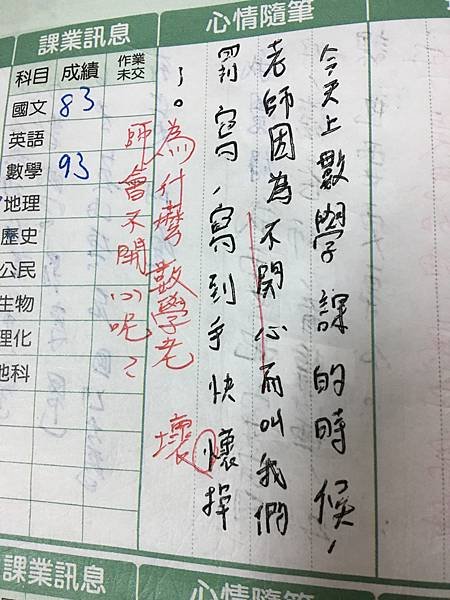 課業訊息
心情隨筆
科目 成績 作業未交
國文 83
英語
數學 93
地理
歷史
公民
生物
理化
地科
今天上數學課的時候，
老師因為不開心而叫我們
罰寫，寫到手快懷掉
了。
壞
為什麼數學老
師會不開心呢？
課業訊息
心情隨筆